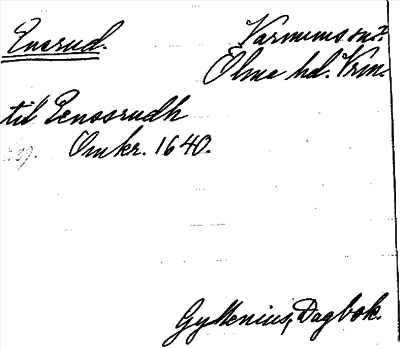 Enerud.
Varnums sn?
Ölme hd. Vrm.
til Eenssrudh
Omkr. 1640.
Gyllenius, Dagbok.